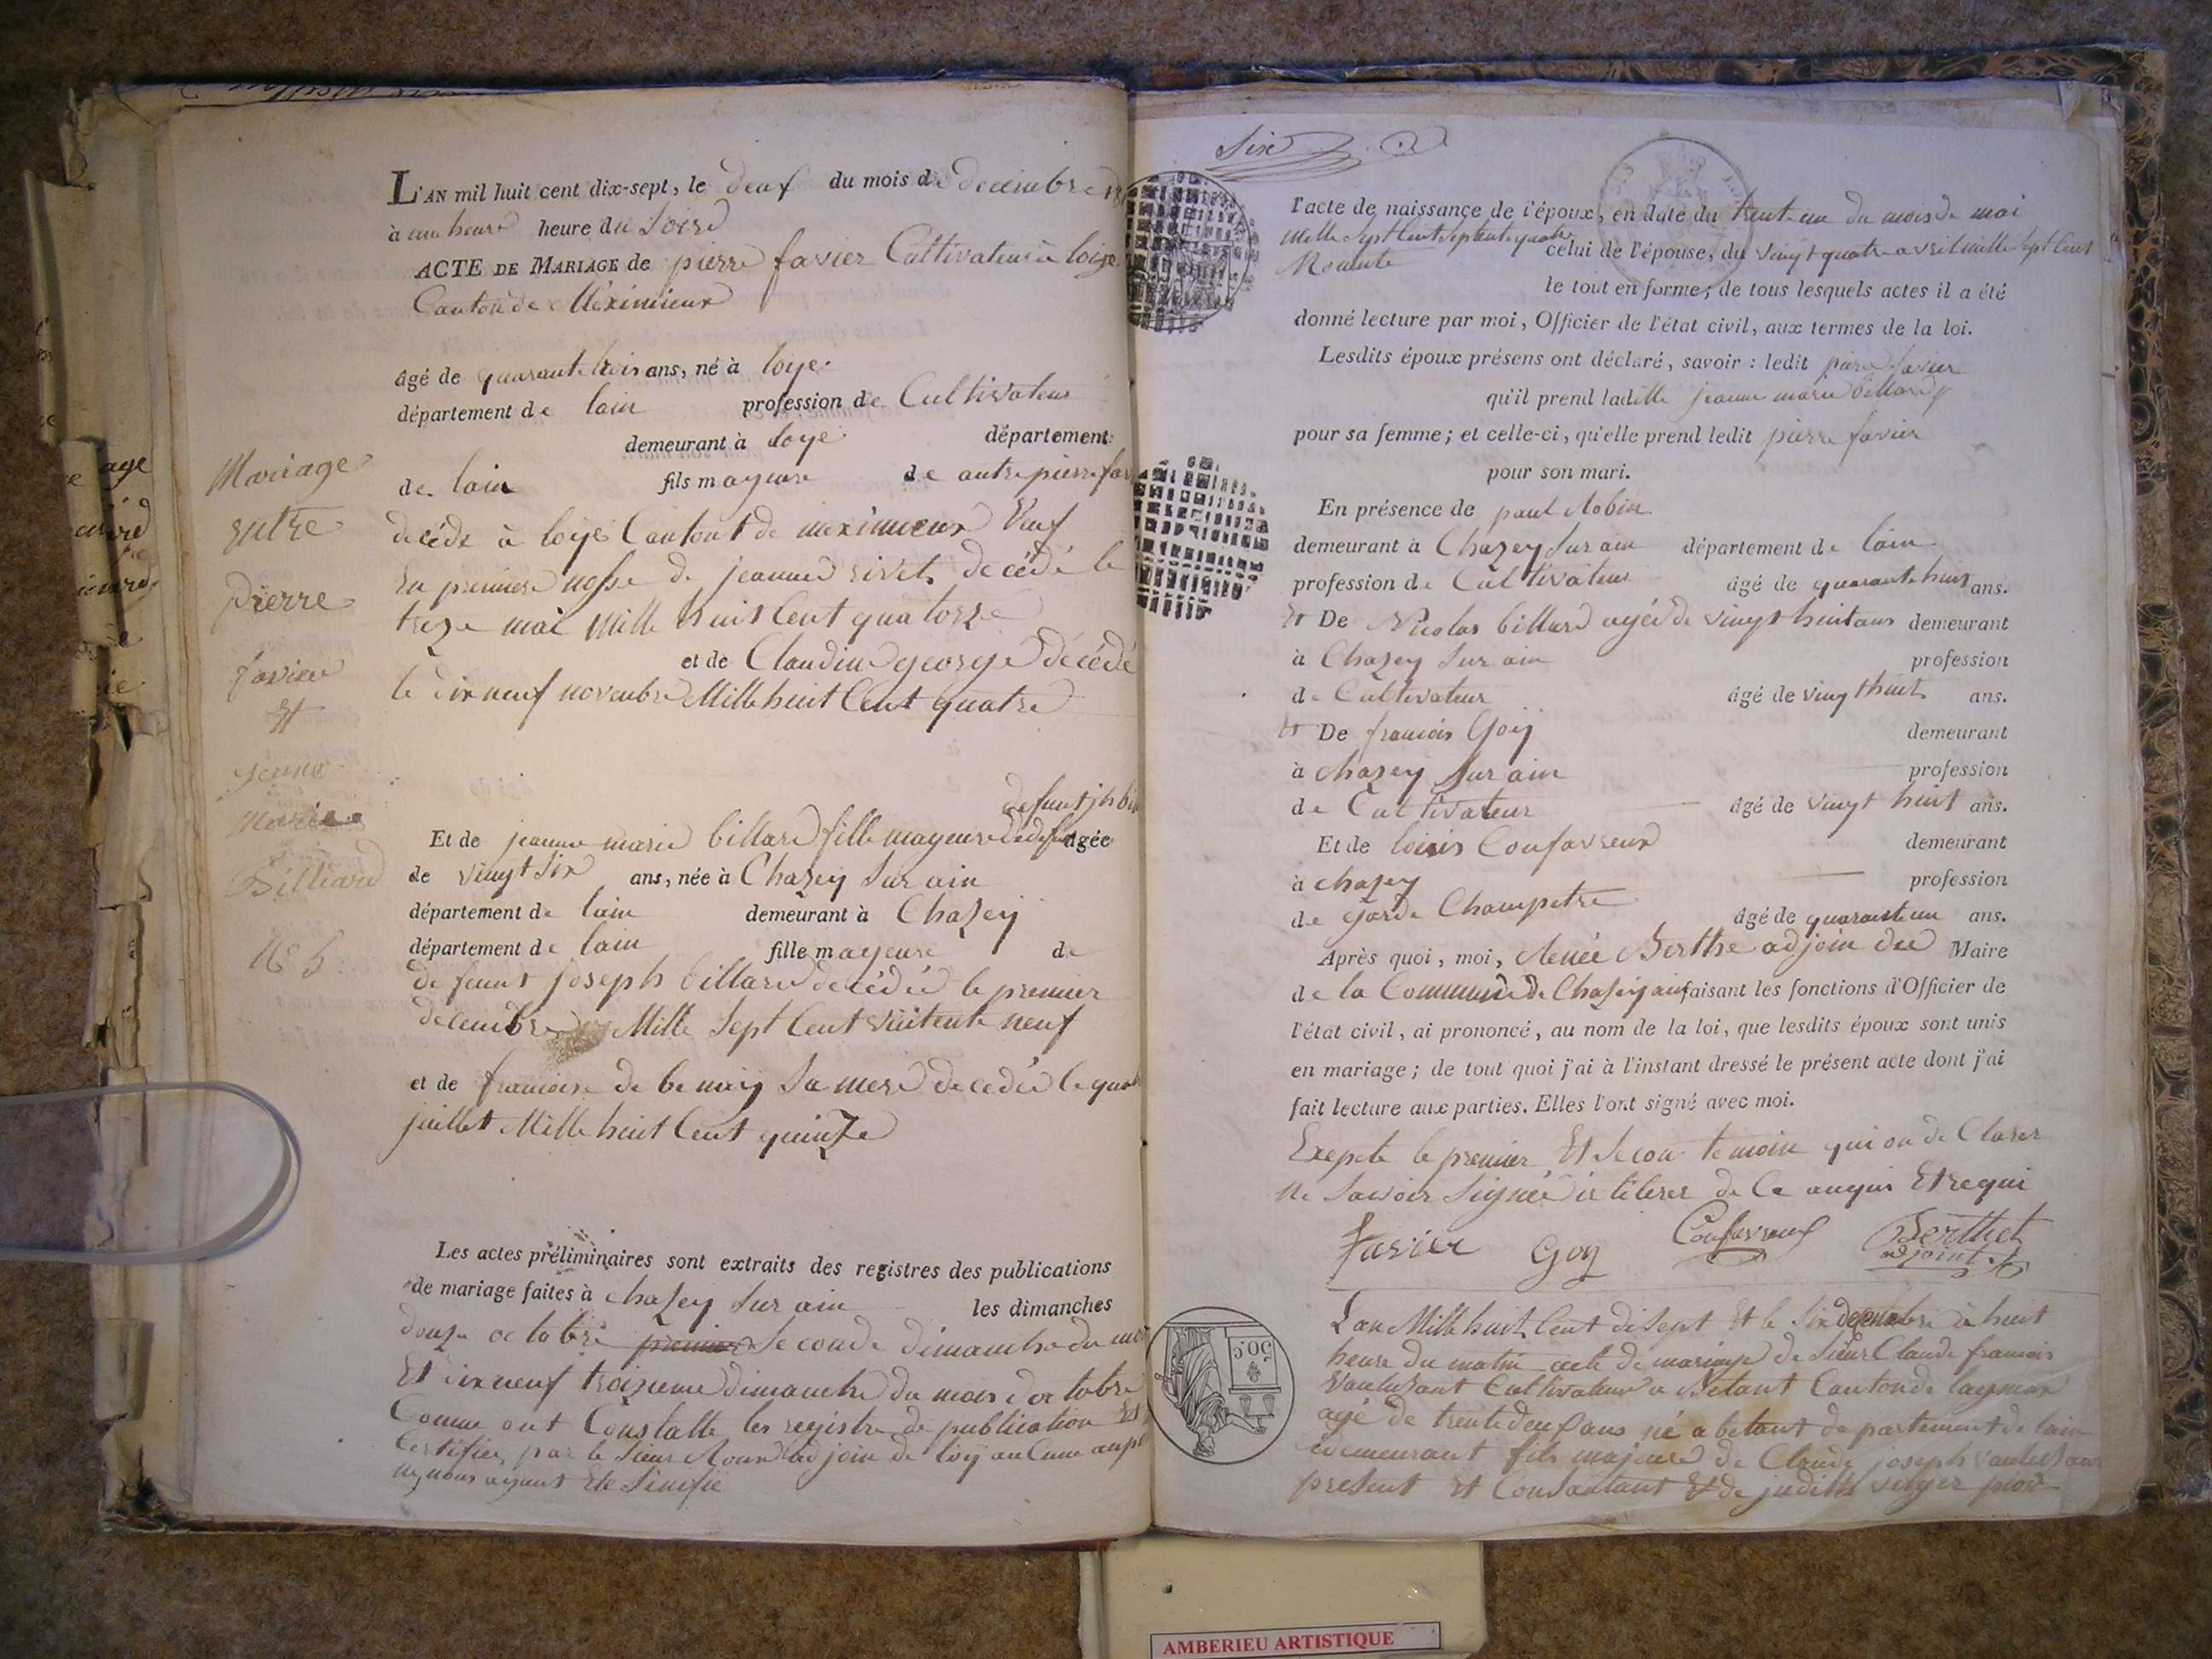 L'AN mil huit cent dix-sept, le deux du mois de decembre
à une heure heure du Soire
ACTE DE MARIAGE de pierre favier Cultivateur à loije
Canton de Meximieux
âgé de quarante trois ans, né à loye
département de lain profession de Cultivateur
demeurant à loye département
de lain fils mayeure de autre pierre fav
decéde à loye Cantont de meximieux Veuf
En premiere nosse de jeanne rivet decédé le
treze mai Mille huit Cent quatorze
et de Claudine george décédé
le dix neuf novembre Mille huit Cent quatre
Mariage
entre
Pierre
favier
Et
jeane
Marie
Billiard
N° 5
defunt jh bil
Et de jeanne marie billard fille mayeure agée
de vingt Six ans, née à Chazey Sur ain
département de lain demeurant à Chazey
département de lain fille mayeure de
defunt joseph billard decédéé le premier
decembre Mille Sept Cent neuf
et de francoise de be may Sa mere decedéé le quat
juillet Mille huit Cent quinze
Les actes préliminaires sont extraits des registres des publications
de mariage faites à chazey Sur ain les dimanches
douze octobre premier Seconde dimanche du mo
Et dix neuf troizieme dimanche du mois doctobre
Comme ont Constatte les registre de publication Et
Certifiee par le Sieur Roux adjoin de loy aucune
nous ayant Ete Sinifie
Six
l'acte de naissance de l'époux, en date du trente un du mois de mai
Mille Sept Cent Septente quatre celui de l'épouse, du vingt quatre avril mille Sept Cent
Nonente
le tout en forme; de tous lesquels actes il a été
donné lecture par moi, Officier de l'état civil, aux termes de la loi.
Lesdits époux présens ont déclaré, savoir : ledit pierre favier
qu'il prend ladille jeanne marie billard
pour sa femme; et celle-ci, qu'elle prend ledit pierre favier
pour son mari.
En présence de paul Robin
demeurant à Chazey Sur ain département de lain
profession de Cultivateur âgé de quarante huit ans.
Et De Nicolas billard agéé de vingt huit ans demeurant
à Chazey Sur ain profession
de Cultivateur âgé de vingt huit ans.
Et De francois Goÿ demeurant
à chazey Sur ain profession
de Cultivateur âgé de vingt huit ans.
Et de louis Confavreux demeurant
à chazey profession
de garde Champetre âgé de quarante un ans.
Après quoi, moi, Renée Berthe adjoin du Maire
de la Commune de Chazey ain faisant les fonctions d'Officier de
l'état civil, ai prononcé, au nom de la loi, que lesdits époux sont unis
en mariage; de tout quoi j'ai à l'instant dressé le présent acte dont j'ai
fait lecture aux parties. Elles l'ont signé avec moi.
Exepete le premier Et Secon temoin qui on de Clarer
ne Savoir Signéé de Ce anquis Et requi
favier Goy Confavreux Berthet
adjoint
50C
Lan Mille huit Cent diSept Et le Six decembre à huit
heure du matin acte de mariage de Sieur Claude francois
Vaulusant Cultivateur a Betant Canton de lagnieux
agé de trente deux ans né a betant departement de lain
demeurant fils majeure de Claude joseph Vaulusant
present Et Consantant Et de judith
AMBERIEU ARTISTIQUE